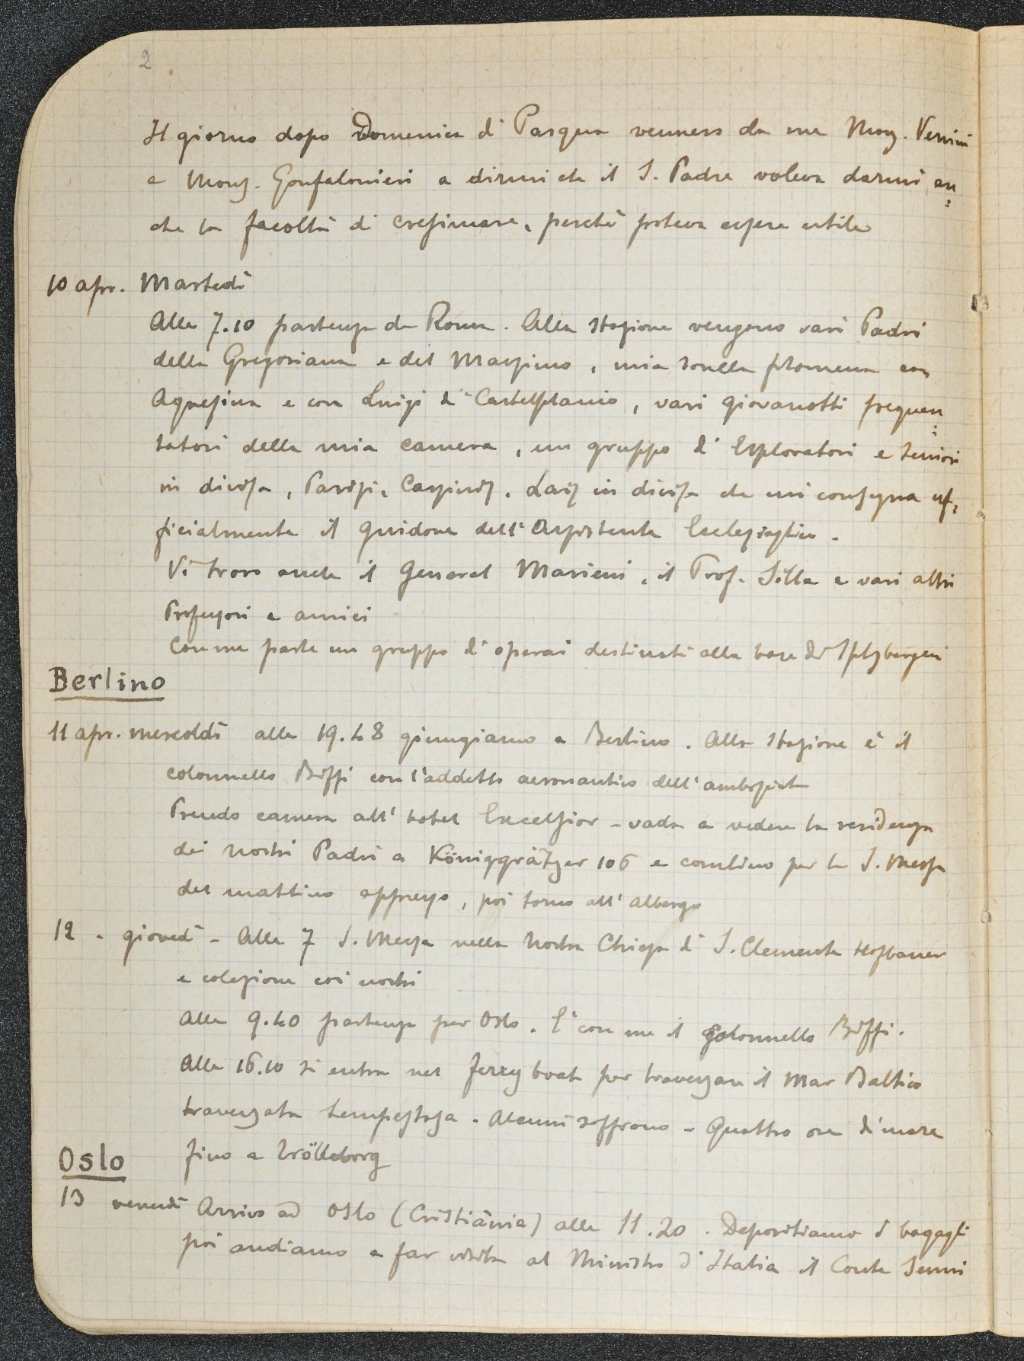 2
Il giorno dopo Domenica di Pasqua vennero da me Mons. Venini
e Mons. Gonfalonieri a dirmi che il S. Padre voleva darmi an
che la facoltà di cresimare, perché poteva essere utile
10 apr. Martedì
Alle 7.10 partenza da Roma. Alla stazione vengono vari Padri
della Gregoriana e del Massimo, mia sorella Filomena con
Agnesina e con Luigi di Castelplanio, vari giovanotti frequen
tatori della mia camera, un gruppo di Esploratori e seniori
in divisa, Parisi, in divisa che mi consegna uf,
ficialmente il guidone dell'Assistente Ecclesiastico.
Vi trovo anche il General Marieni, il Prof. Silla e vari altri
Professori e amici
Con me parte un gruppo di operai destinati alla base di Spitzbergen
Berlino
11 apr. mercoldì alle 19.48 giungiamo a Berlino. Alla stazione è il
colonnello Biffi con l'addetto aeronautico dell'ambasciata
Prendo camera all'hotel Excelsior - vado a vedere la residenza
dei nostri Padri a Königgrätzer 106 e combino per la S. Messa
del mattino appresso, poi torno all'albergo
12 - giovedì - Alle 7 S. Messa nella nostra Chiesa di S. Clemente Hofbauer
e colazione coi nostri
Alle 9.40 partenza per Oslo. È con me il colonnello Biffi.
Alle 16.10 si entra nel ferryboat per traversare il Mar Baltico
traversata tempestosa. Alcuni soffrono - Quattro ore di mare
fino a Trölleborg
Oslo
13 venerdì Arrivo ad Oslo (Cristiània) alle 11.20. Depositiamo i bagagli
poi andiamo a far visita al Ministro d'Italia il Conte Senni